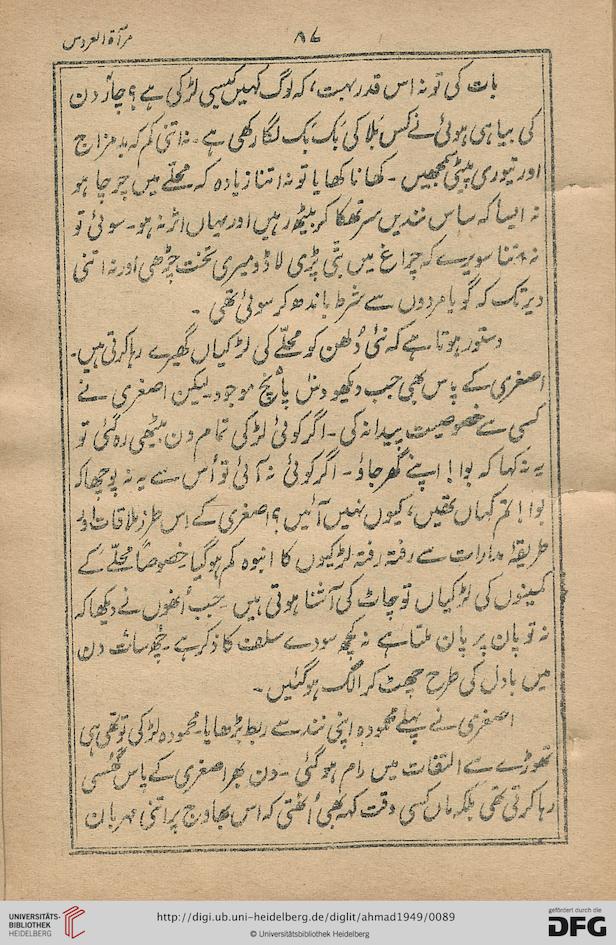 مرآۃ العروس
۸۷
بات کی تو نہ اس قدر بہت، کہ لوگ کہیں کیسی لڑکی ہے؟ چار دن
کی بیاہی ہوئی نے کس بلا کی بک بک لگا رکھی ہے۔ نہ اتنی کم کہ بدمزاج
اور تیوری پیٹی سمجھیں۔ کھانا کھایا تو نہ اتنا زیادہ کہ محلّے میں چرچا ہو
نہ ایسا کہ ساس نندیں سر تھکا کر بیٹھ رہیں اور یہاں اثر نہ ہو۔ سوئی تو
نہ اتنا سویرے کہ چراغ میں بتّی پڑی لاڈو میری تخت چڑھی اور نہ اتنی
دیر تک کہ گویا مردوں سے شرط باندھ کر سوئی تھی۔
دستور ہوتا ہے کہ نئی دُلھن کو محلّے کی لڑکیاں گھیرے رہا کرتی ہیں۔
اصغری کے پاس بھی جب دیکھو دس پانچ موجود۔ لیکن اصغری نے
کسی سے خصوصیت پیدا نہ کی۔ اگر کوئی لڑکی تمام دن بیٹھی رہ گئی تو
یہ نہ کہا کہ بوا! اپنے گھر جاؤ۔ اگر کوئی نہ آئی تو اُس سے یہ نہ پوچھا کہ
بوا! تم کہاں تھیں، کیوں نہیں آئیں؟ اصغری کے اِس طرزِ ملاقات اور
طریقۂ مدارات سے رفتہ رفتہ لڑکیوں کا انبوہ کم ہو گیا خصوصاً محلّے کے
کمینوں کی لڑکیاں تو چاٹ کی آشنا ہوتی ہیں جب اُنھوں نے دیکھا کہ
نہ تو پان پر پان ملتا ہے نہ کچھ سودے سلف کا ذکر ہے۔ چھ سات دن
میں بادل کی طرح چھٹ کر الگ ہو گئیں۔
اصغری نے پہلے محمودہ اپنی نند سے ربط بڑھایا۔ محمودہ لڑکی تو تھی ہی
تھوڑے سے التفات میں رام ہو گئی۔ دن بھر اصغری کے پاس گھُسی
رہا کرتی تھی بلکہ ماں کسی وقت کہہ بھی اُٹھتی کہ اس بھاوج پر اتنی مہربان
UNIVERSITÄTS-
BIBLIOTHEK
HEIDELBERG
http://digi.ub.uni-heidelberg.de/diglit/ahmad1949/0089
© Universitätsbibliothek Heidelberg
gefördert durch die
DFG